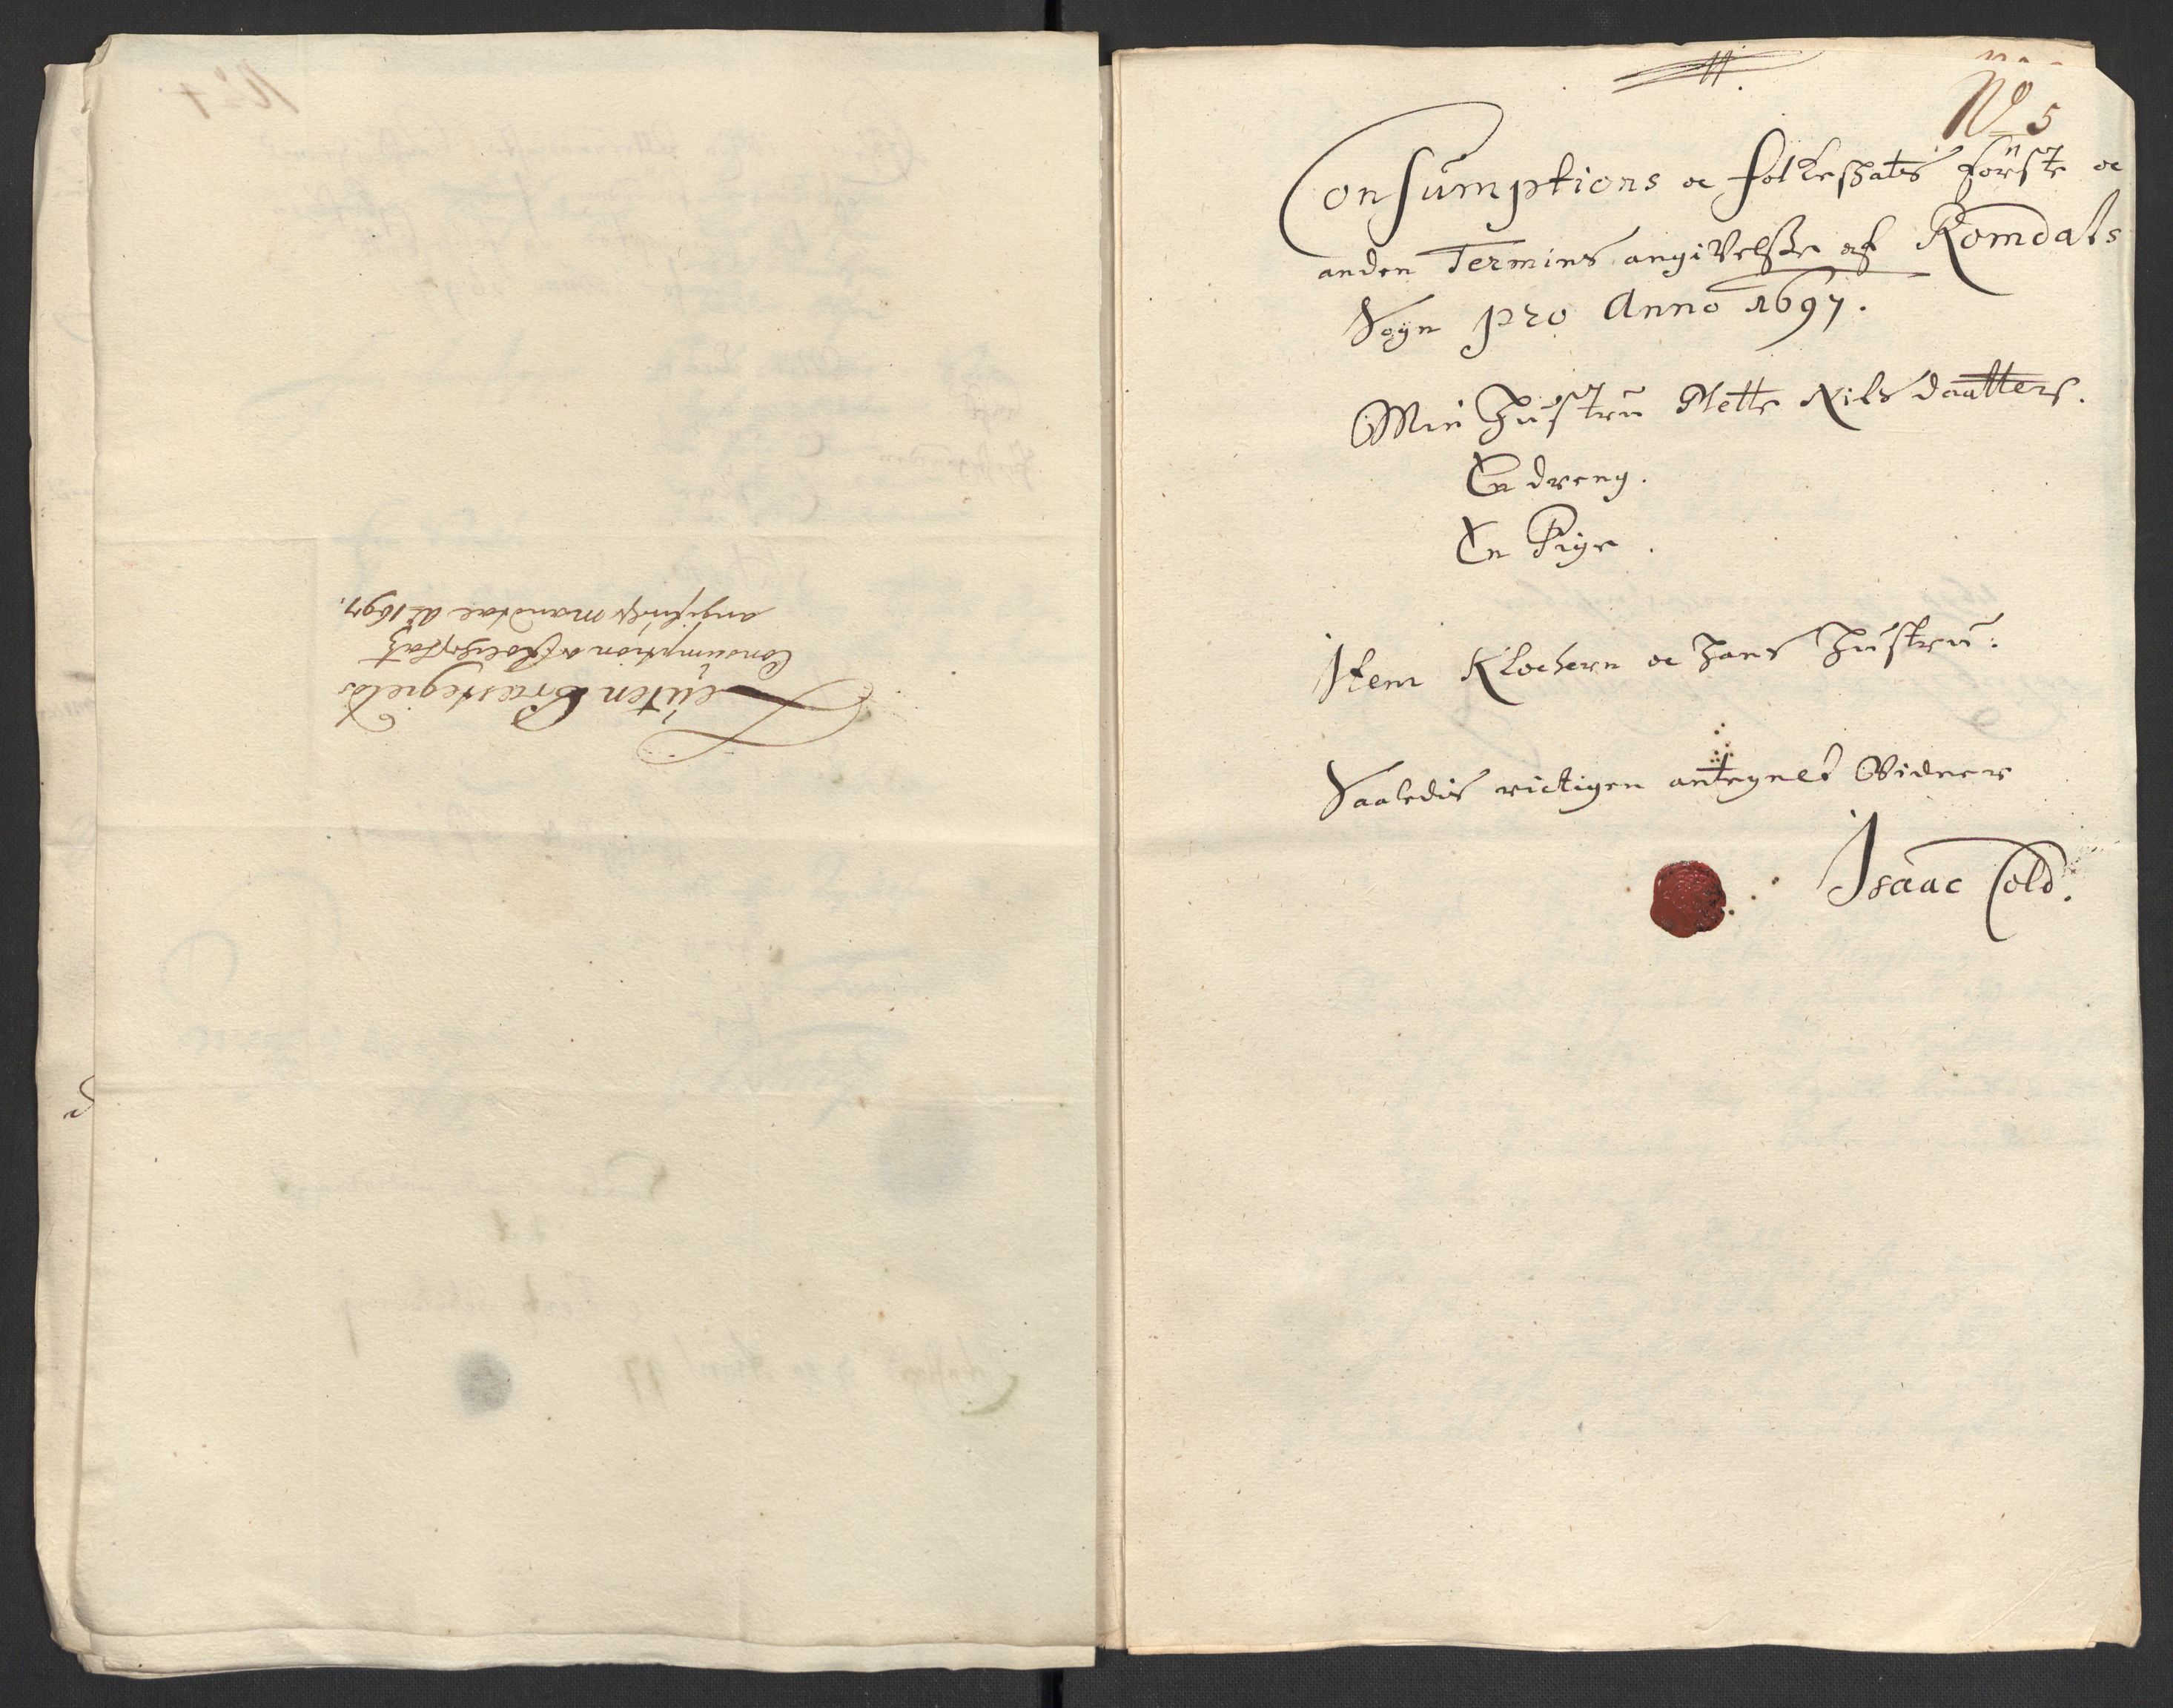 Leuten Præstegields
Consumption og Folcheschatz
angifvelse mandtal A° 1697.
N° 5
Consumptions oc folkeskatis förste oc
anden Termins angivelse af Romdals
Sogn pro Anno 1697.
Min Hustru Mette Nilsdaatter.
En dreng.
En Pige.
Item Klockern oc hans Hustru.
Saaledis rictigen antegnet Vidner
Isaac Cold.